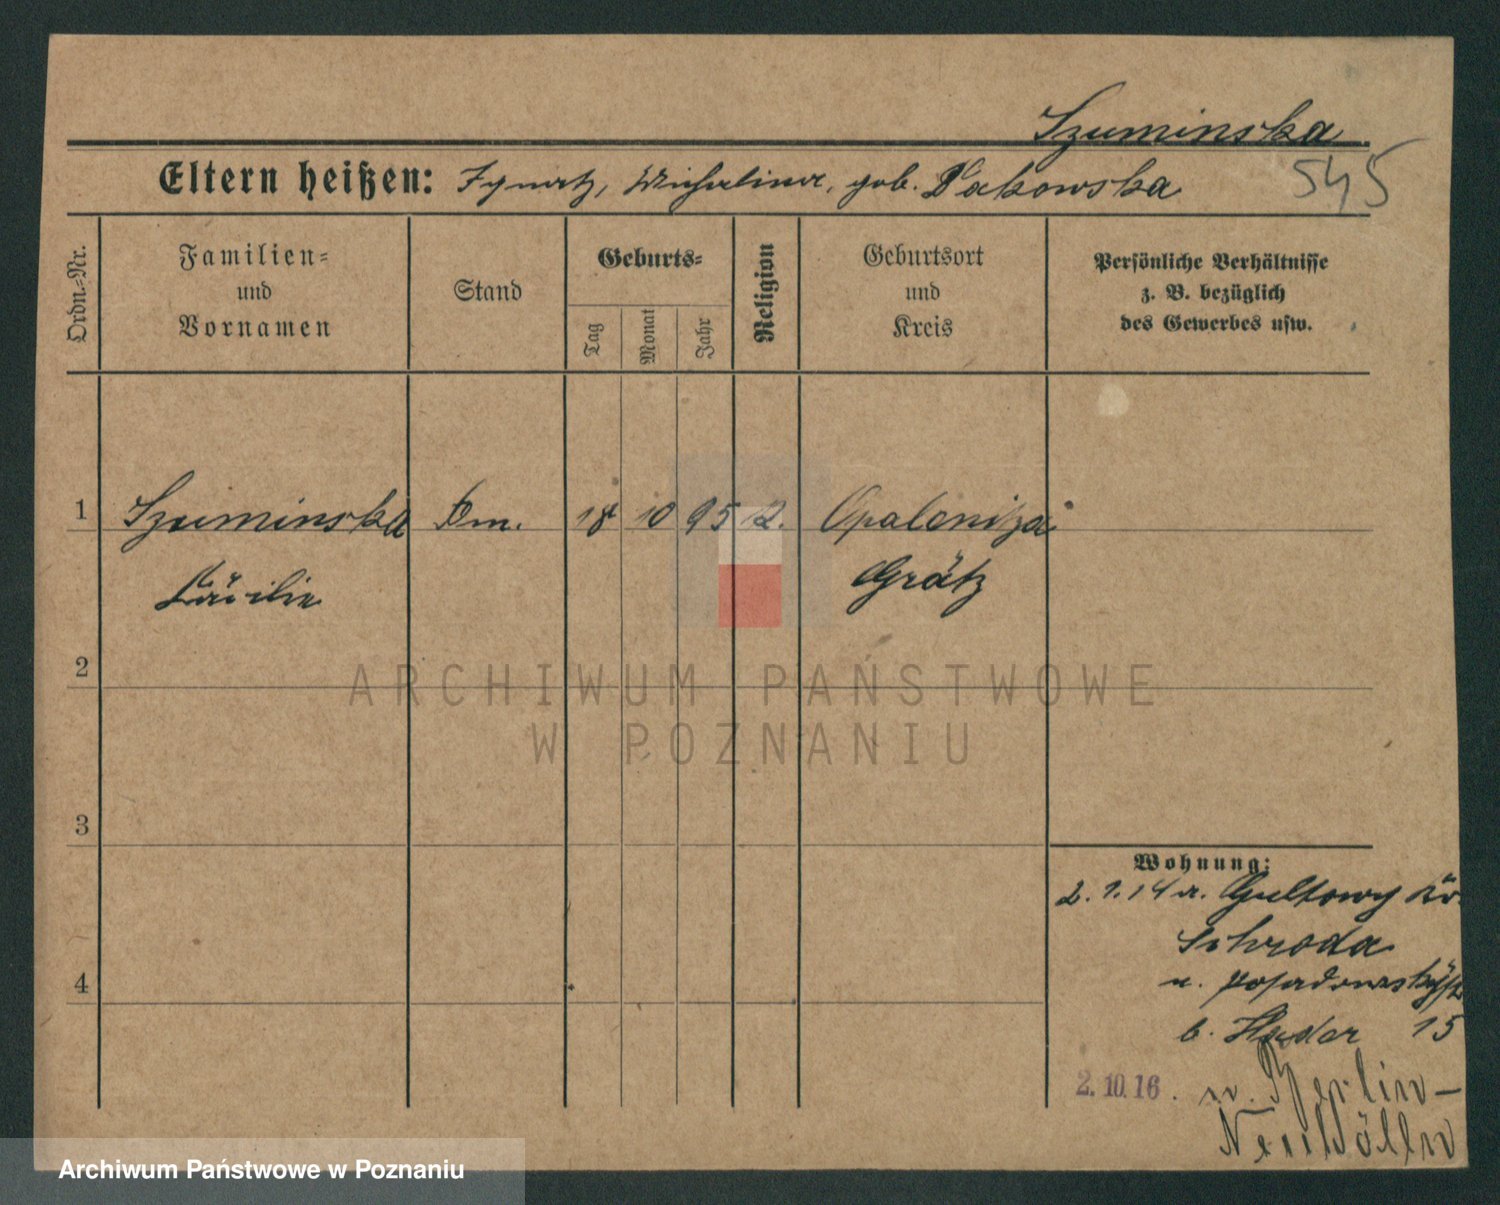 Szuminska
545
Eltern heißen: Ignatz, Michalina, geb. Pakowska
Ordn.-Nr.
Familien-
und
Vornamen
Stand
Geburts-
Tag
Monat
Jahr
Religion
Geburtsort
und
Kreis
Persönliche Verhältnisse
z. B. bezüglich
des Gewerbes usw.
1 Szuminska 18 10 95 Opalenitza
Cäcilie Grätz
2
3
4
Wohnung:
2. 1. 14 a. Gultowy Kr.
Schroda
n.
b. 15
2.10.16. n. Berlin-
Neukölln
ARCHIWUM PAŃSTWOWE
W POZNANIU
Archiwum Państwowe w Poznaniu